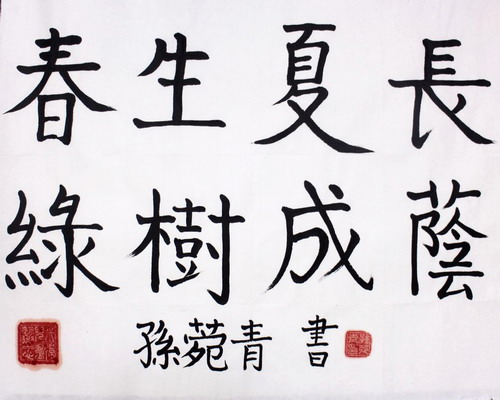 春生夏長
綠樹成蔭
孫菀青 書